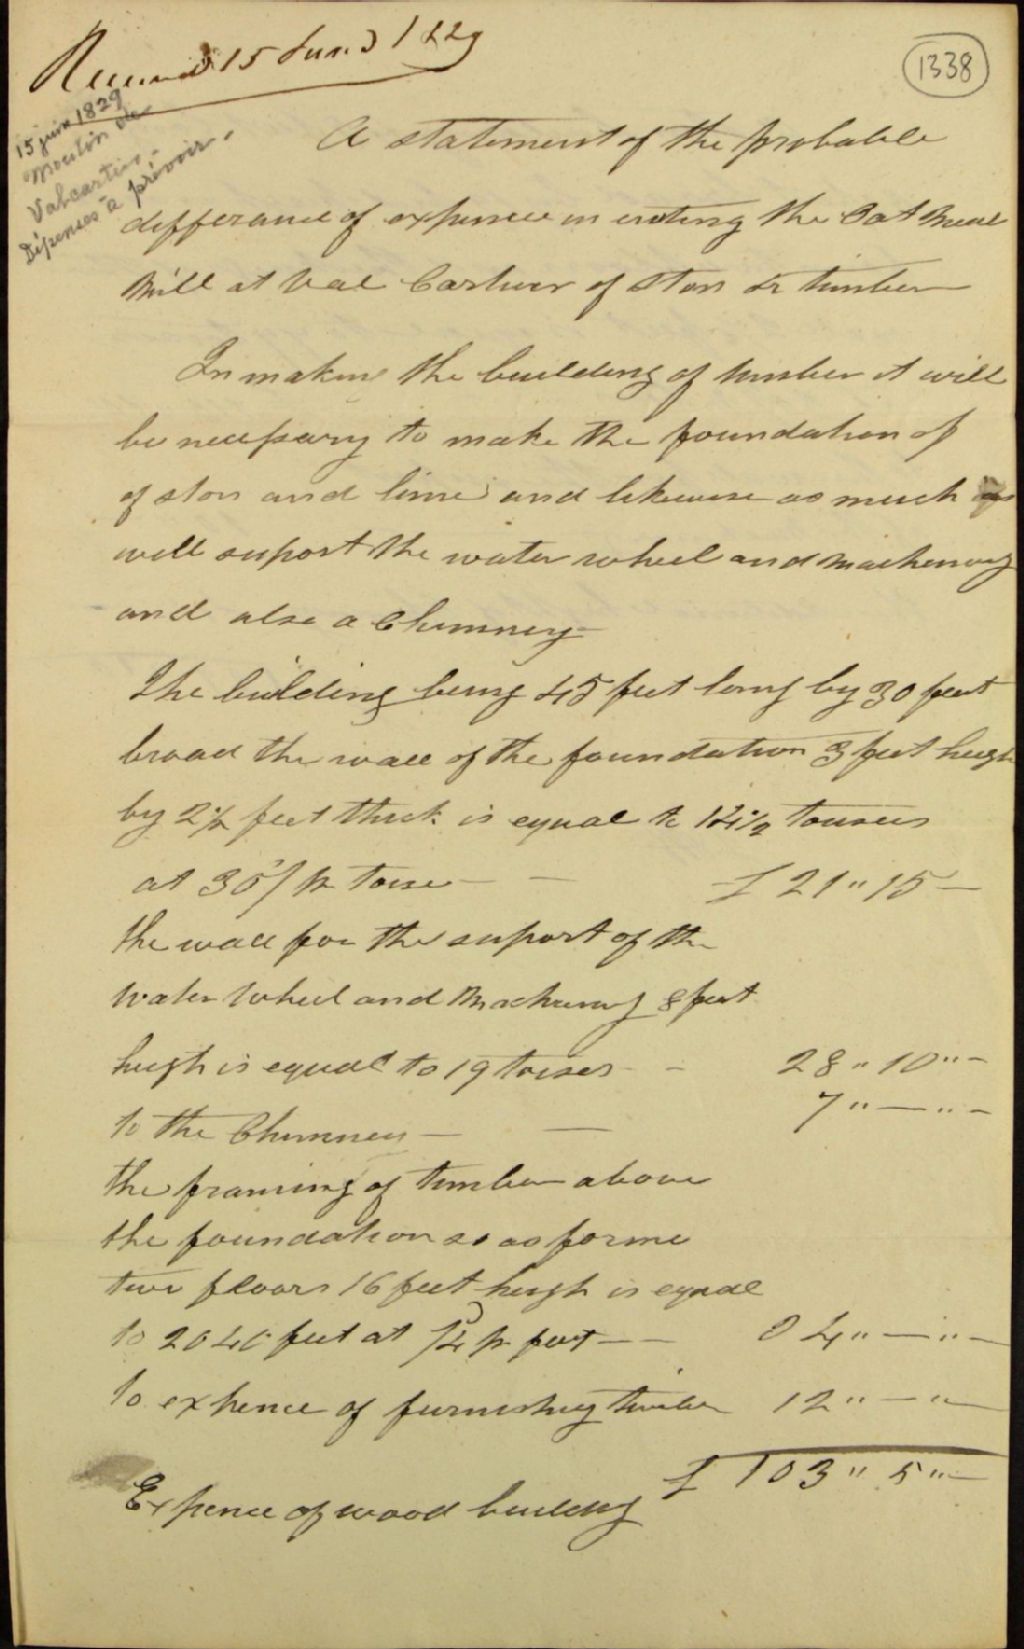 Received 15 June 1829
1338
15 juin 1829
Moulin de
Valcartier.
Dépenses à prévoir.
A statement of the probable
differance of expence in ereting the Oat Meal
Mill at Val Cartier of ston or timber
In making the building of timber it will
be necessary to make the foundation of
of ston and lime and likewise as much as
will suport the water wheel and Machenery
and also a Chimney
The building being 45 feet long by 30 feet
broad the wall of the foundation 3 feet heigh
by 2½ feet thick is equal to 14½ toises
at 30/ pr toise — — £ 21 " 15 —
the wall for the suport of the
Water Wheel and Machinery 8 feet
heigh is equal to 19 toises - - 28 " 10 " -
to the Chimney — — 7 " — " -
the framing of timber above
the foundation so as forme
two floors 16 feet heigh is equal
to 2040 feet at pr foot — — 34 " — " —
to expence of furnishing timber 12 " — " —
Expence of wood building £ 103 " 5 " —